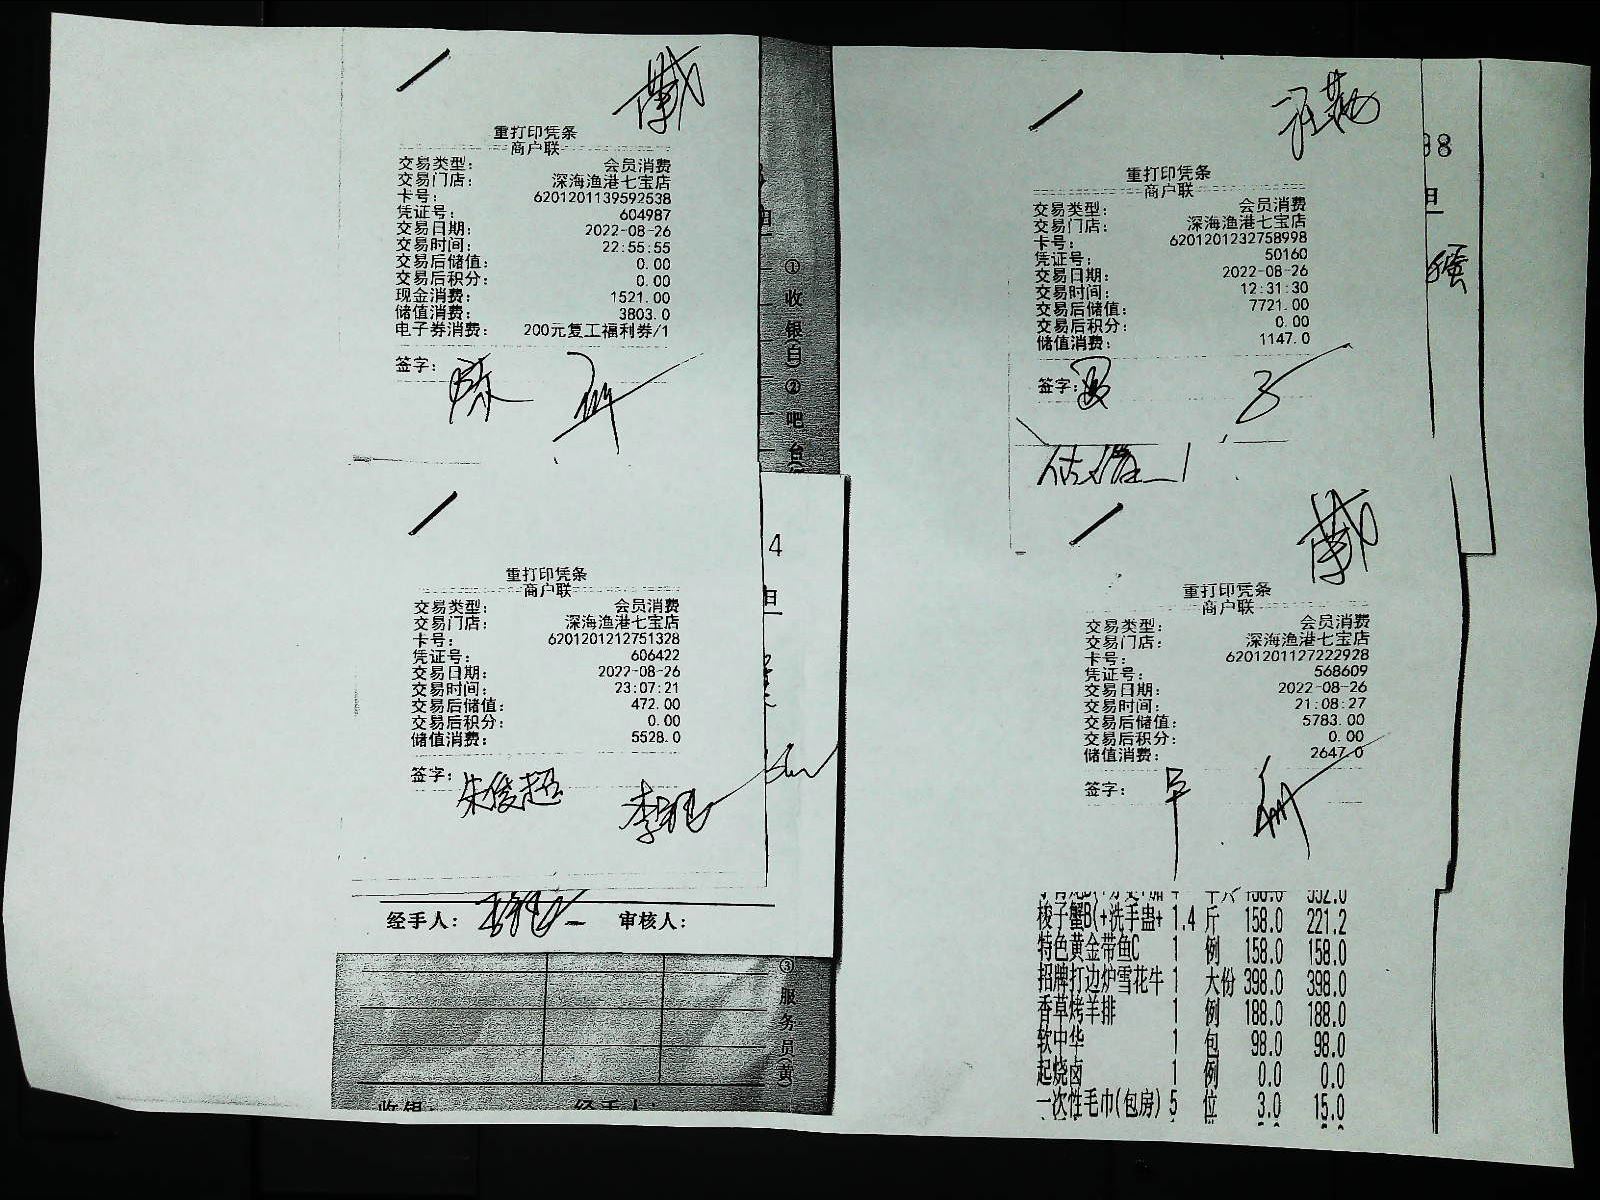 重打印凭条
商户联
交易类型： 会员消费
交易门店： 深海渔港七宝店
卡号： 6201201139592538
凭证号： 604987
交易日期： 2022-08-26
交易时间： 22:55:55
交易后储值： 0.00
交易后积分： 0.00
现金消费： 1521.00
储值消费： 3803.0
电子券消费： 200元复工福利券/1
签字：
重打印凭条
商户联
交易类型： 会员消费
交易门店： 深海渔港七宝店
卡号： 6201201212751328
凭证号： 606422
交易日期： 2022-08-26
交易时间： 23:07:21
交易后储值： 472.00
交易后积分： 0.00
储值消费： 5528.0
签字： 朱俊超
经手人： 审核人：
①收银(白)②吧台
4
③服务员(黄)
重打印凭条
商户联
交易类型： 会员消费
交易门店： 深海渔港七宝店
卡号： 6201201232758998
凭证号： 50160
交易日期： 2022-08-26
交易时间： 12:31:30
交易后储值： 7721.00
交易后积分： 0.00
储值消费： 1147.0
签字：
重打印凭条
商户联
交易类型： 会员消费
交易门店： 深海渔港七宝店
卡号： 6201201127222928
凭证号： 568609
交易日期： 2022-08-26
交易时间： 21:08:27
交易后储值： 5783.00
交易后积分： 0.00
储值消费： 2647.0
签字：
梭子蟹B(+洗手盅+ 1.4 斤 158.0 221.2
特色黄金带鱼C 1 例 158.0 158.0
招牌打边炉雪花牛 1 大份 398.0 398.0
香草烤羊排 1 例 188.0 188.0
软中华 1 包 98.0 98.0
起烧卤 1 例 0.0 0.0
一次性毛巾(包房) 5 位 3.0 15.0